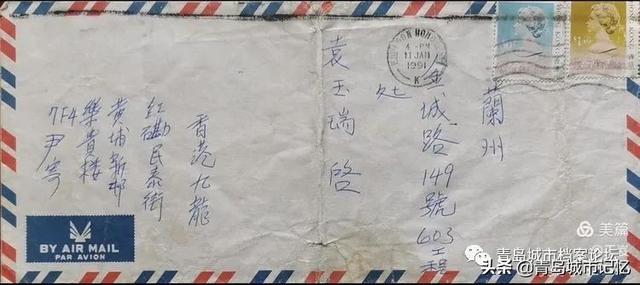 蘭州
金城路149號603工程
处
袁玉瑞 啓
香港九龍
红磡民泰街
黄埔新邨
樂貴楼
7F4 尹寄
4 - PM
11 JAN
1991
K
BY AIR MAIL
PAR AVION
美篇
青岛城市档案论坛
头条 @青岛城市记忆